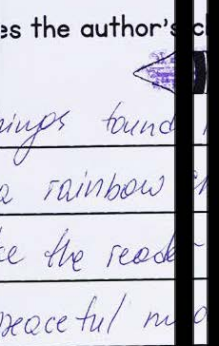 es the author's c
ings found
a rainbow
ke the reade
peaceful m